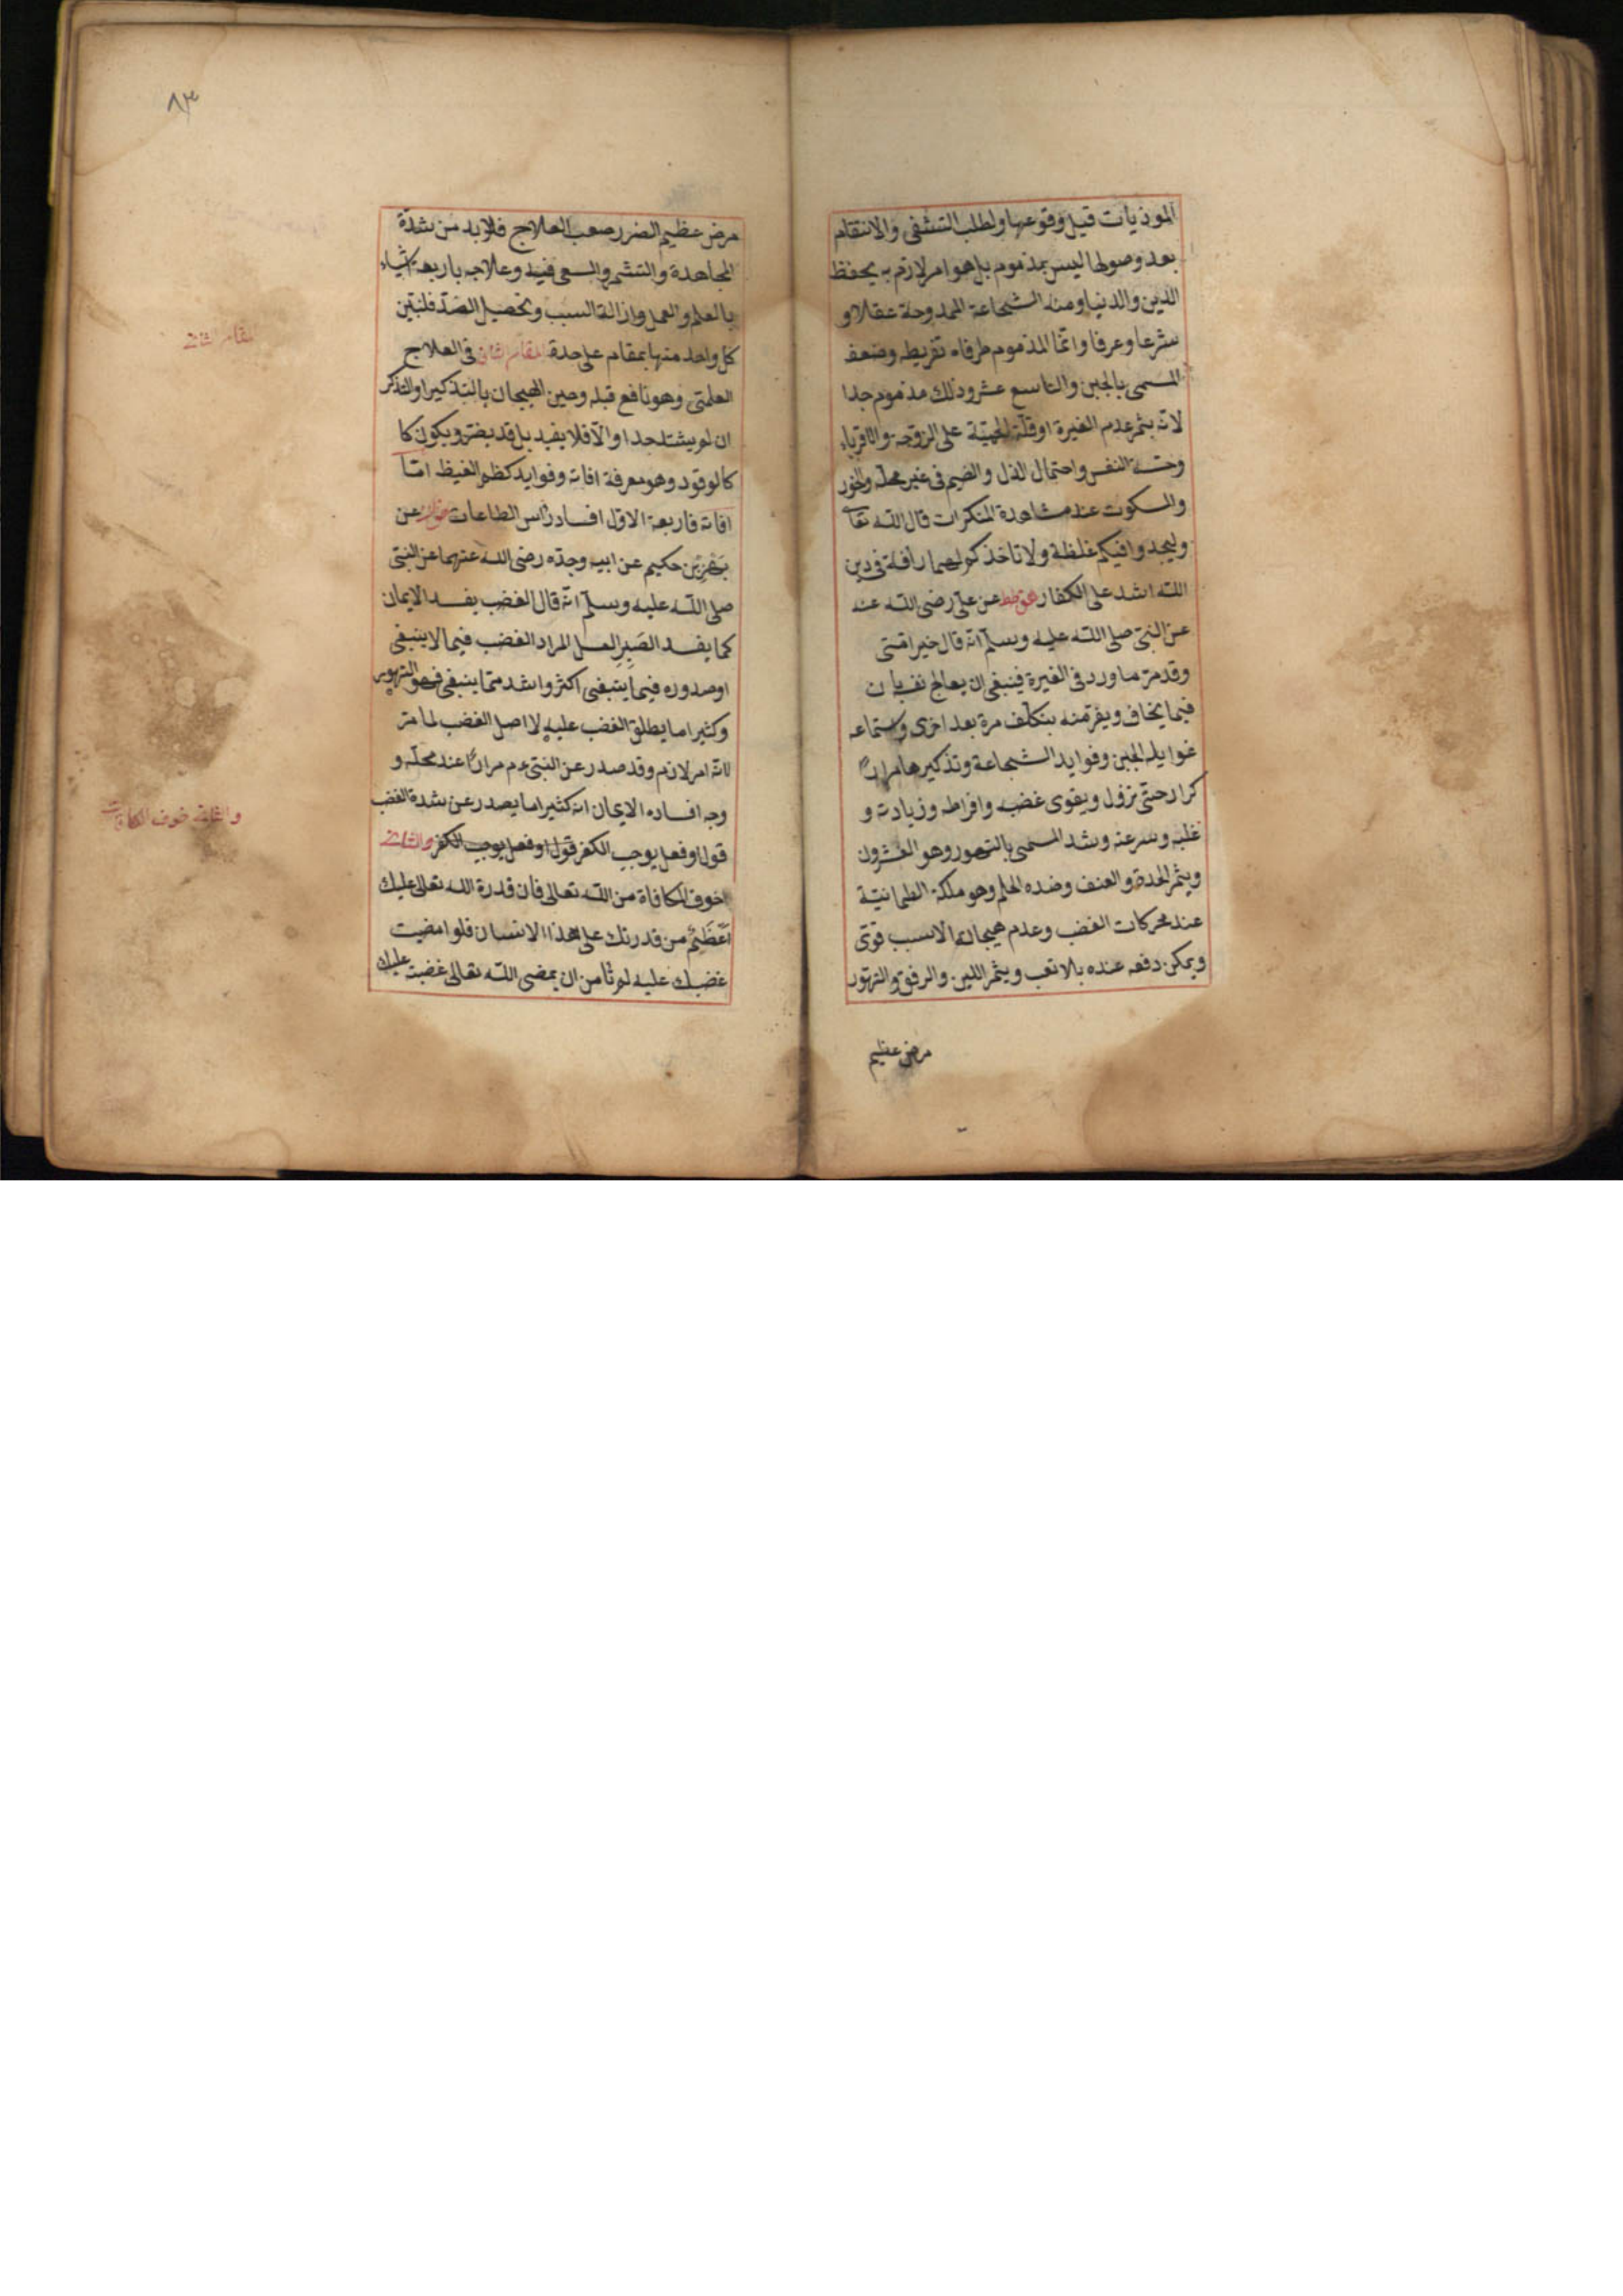 الموذيات قبل وقوعها ولطلب التشفى والانتقام
بعد وصولها ليس بمذموم بل هو امر لازم به يحفظ
الدين والدنيا ومنه الشجاعة الممدوحة عقلا و
شرعا وعرفا وانما المذموم طرفاه تفريطه وضعفه
المسمى بالجبن والتاسع عشر وذلك مذموم جدا
لانه يثمر عدم الغيرة او قلة الحمية على الزوجة والاقرباء
وخسة النفس واحتمال الذل والضيم فى غير محله والخور
والسكوت عند مشاهدة المنكرات قال الله تعا
وليجدوا فيكم غلظة ولا تاخذكم لهما رأفة فى دين
الله اشد على الكفار هق طط عن على رضى الله عنه
عن النبى صلى الله عليه وسلم انه قال خير امتى
وقد مر ما ورد فى الغيرة فينبغى ان يعالج نف بان
فيما يخاف ويفر منه بتكلف مرة بعد اخرى واستماعه
غوايل الجبن وفوايد الشجاعة وتذكيرها مرارا
كرار حتى تزول ويقوى غضبه وافراط وزيادته و
غلبه وسرعته وشد المسمى بالتهور وهو العشرون
ويثمر الحدة والعنف وضده الحلم وهو ملكة الطمانية
عند محركات الغضب وعدم هيجانه الا بسبب قوى
ويمكن دفعه عنده بلا تعب ويثمر اللين والرفق والتهور
مرض عظيم
٨٣
مرض عظيم الضرر صعب العلاج فلا بد من شدة
المجاهدة والتشمر والسعى فيه وعلاجه باربعة اشياء
بالعلم والعمل وازالة السبب وتحصيل الضد فلنبين
كل واحد منها بمقام على حدة المقام الثانى فى العلاج
العلمى وهو نافع قبله وحين الهيجان بالتذكير او التذكر
ان لم يشتد جدا والا فلا يفيد بل قد يضر ويكون كا
كالوقود وهو معرفة افاته وفوايد كظم الغيظ اما
افاته فاربعة الاول افساد رأس الطاعات عن
بهز بن حكيم عن ابيه وجده رضى الله عنهما عن النبى
صلى الله عليه وسلم انه قال الغضب يفسد الايمان
كما يفسد الصبر العسل المراد الغضب فيما لا ينبغى
او صدوره فيما ينبغى اكثر واشد مما ينبغى فهو التهور
وكثيرا ما يطلق الغضب عليه لا اصل الغضب لما مر
لانه امر لازم وقد صدر عن النبى عم مرارا عند محله و
وجه افساده الايمان انه كثيرا ما يصدر عن شدة الغضب
قول او فعل يوجب الكفر قول او فعل يوجب الكفر والثانى
خوف المكافاة من الله تعالى فان قدرة الله تعالى عليك
اعظم من قدرتك على هذا الانسان فلو امضيت
غضبك عليه لم تأمن ان يمضى الله تعالى غضبه عليك
مقام الثانى
والثانى خوف المكافات